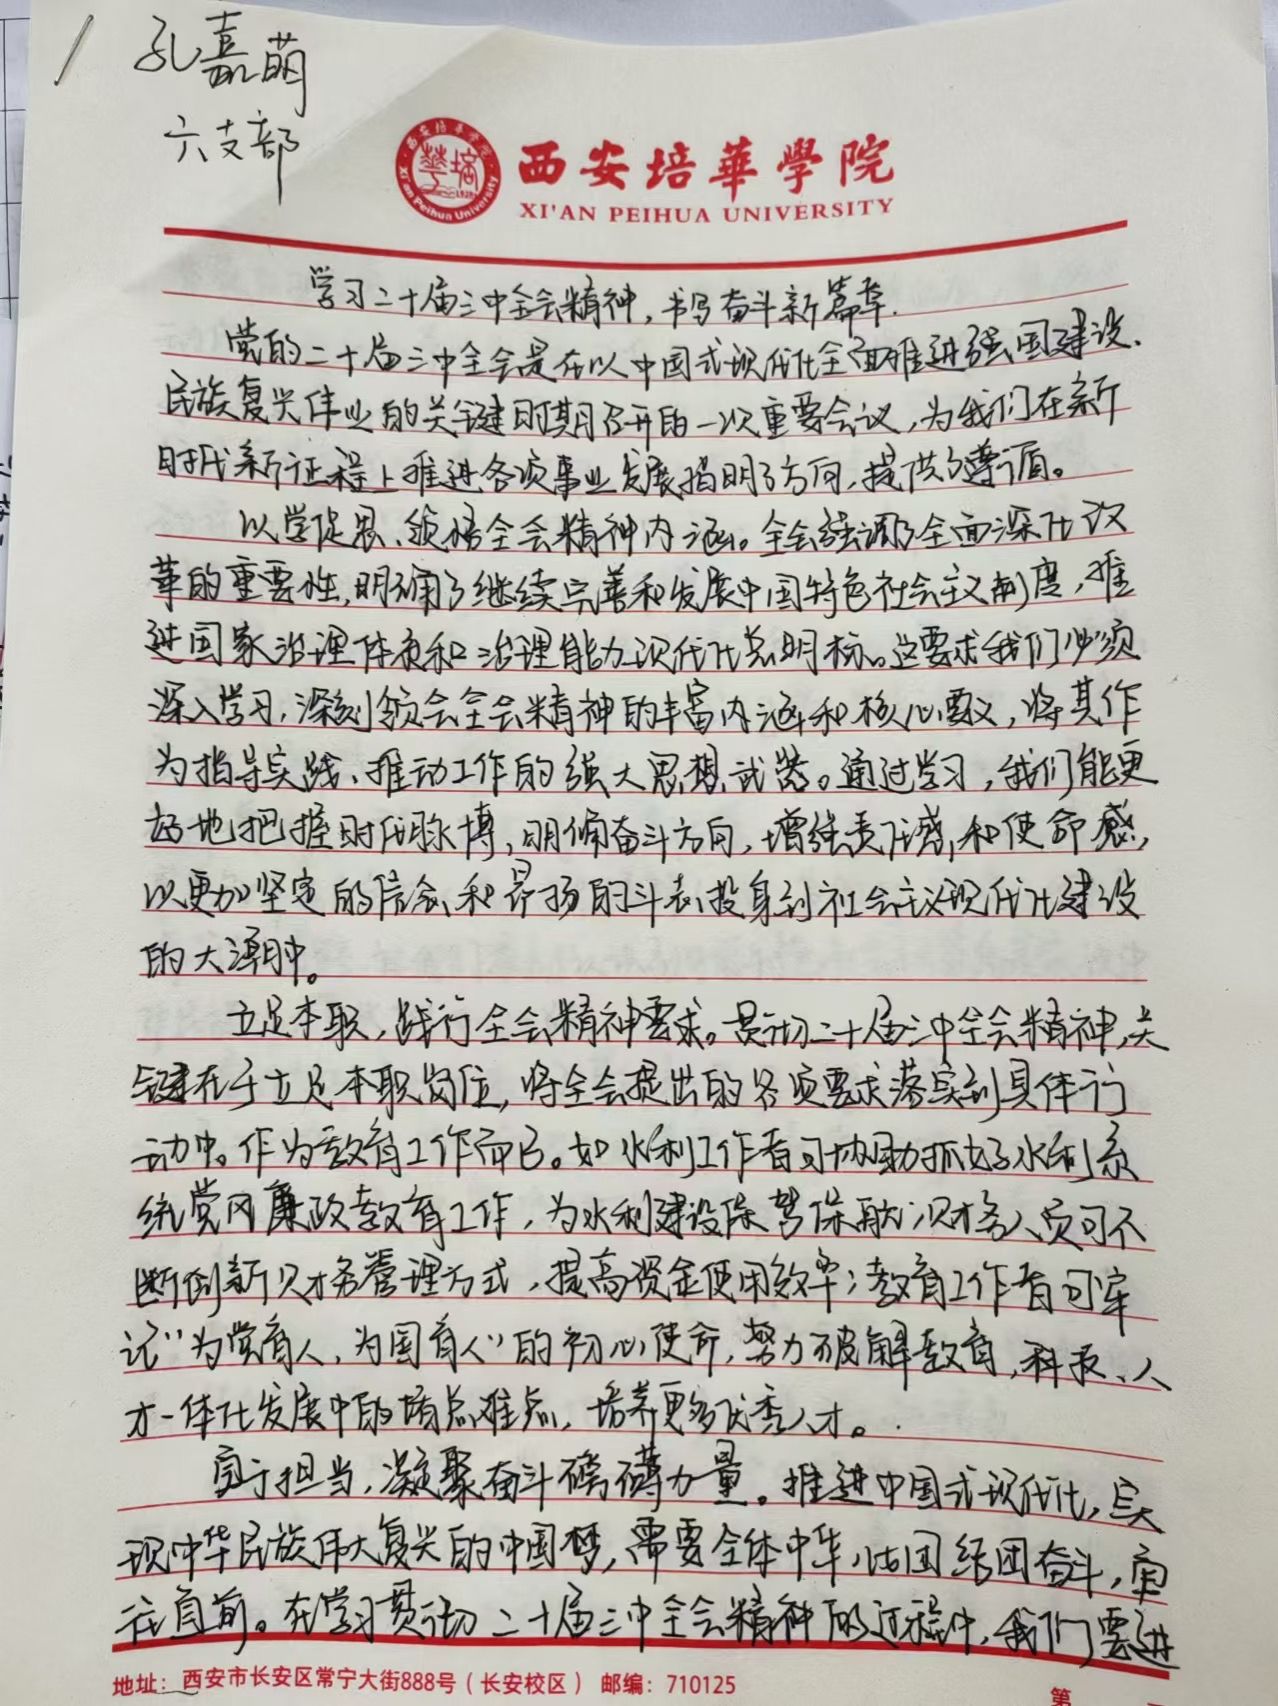 孔嘉萌
六支部
西安培華學院
XI'AN PEIHUA UNIVERSITY
学习二十届三中全会精神，书写奋斗新篇章.
党的二十届三中全会是在以中国式现代化全面推进强国建设、
民族复兴伟业的关键时期召开的一次重要会议，为我们在新
时代新征程上推进各项事业发展指明了方向，提供了遵循。
以学促思、领悟全会精神内涵。全会强调了全面深化改
革的重要性，明确了继续完善和发展中国特色社会主义制度，推
进国家治理体系和治理能力现代化总明标。这要求我们必须
深入学习，深刻领会全会精神的丰富内涵和核心要义，将其作
为指导实践、推动工作的强大思想武器。通过学习，我们能更
好地把握时代脉博，明确奋斗方向，增强责任感和使命感，
以更加坚定的信念和昂扬的斗志投身到社会主义现代化建设
的大潭中。
立足本职，践行全会精神要求。贯彻二十届三中全会精神，关
键在于立足本职岗位，将全会提出的各项要求落实到具体行
动中。作为教育工作而已。如水利工作者可协助抓好水利系
统党风廉政教育工作，为水利建设保驾保航；财务人员可不
断创新财务管理方式，提高资金使用效率；教育工作者可牢
记“为党育人，为国育人”的初心使命，努力破解教育，科技、人
才一体化发展中的堵点难点，培养更多优秀人才。
勇于担当，凝聚奋斗磅礴力量。推进中国式现代化，实
现中华民族伟大复兴的中国梦，需要全体中华儿女团结团奋斗，勇
往直前。在学习贯彻二十届三中全会精神的过程中，我们要进
地址：西安市长安区常宁大街888号（长安校区） 邮编：710125
第